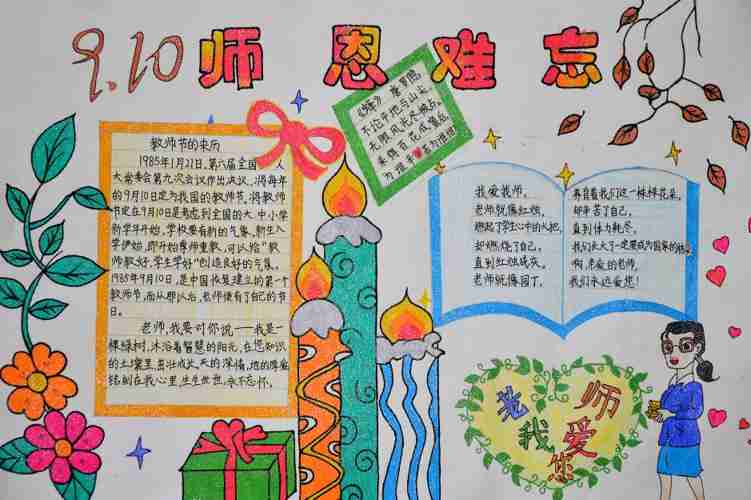 9.10 师恩难忘
《蜂》 唐 罗隐
不论平地与山尖,
无限风光尽被占。
采得百花成蜜后,
为谁辛苦为谁甜
教师节的来历
1985年1月21日,第六届全国人
大常委会第九次会议作出决议,将每年
的9月10日定为我国的教师节,将教师
节定在9月10日是考虑到全国的大中小学
新学年开始,学校要有新的气象,新生入
学伊始,即开始尊师重教,可以给"教
师教好,学生学好"创造良好的气氛。
1985年9月10日,是中国恢复建立的第一个
教师节,而从那以后,老师便有了自己的节
日。
老师,我要对你说——我是一
棵绿树,沐浴着智慧的阳光,在您知识
的土壤里茁壮成长,天的深情,地的厚爱
铭刻在我心里,生生世世,永不忘怀。
我爱我师,
老师就像红烛,
燃起了学生心中的火把,
却燃烧了自己,
直到红烛残灰。
老师就像园丁,
养育着我们这一棵棵花朵,
却辛苦了自己,
直到体力耗尽,
我们长大了一定要成为国家的栋
啊,亲爱的老师,
我们永远爱您!
老师
我爱
您